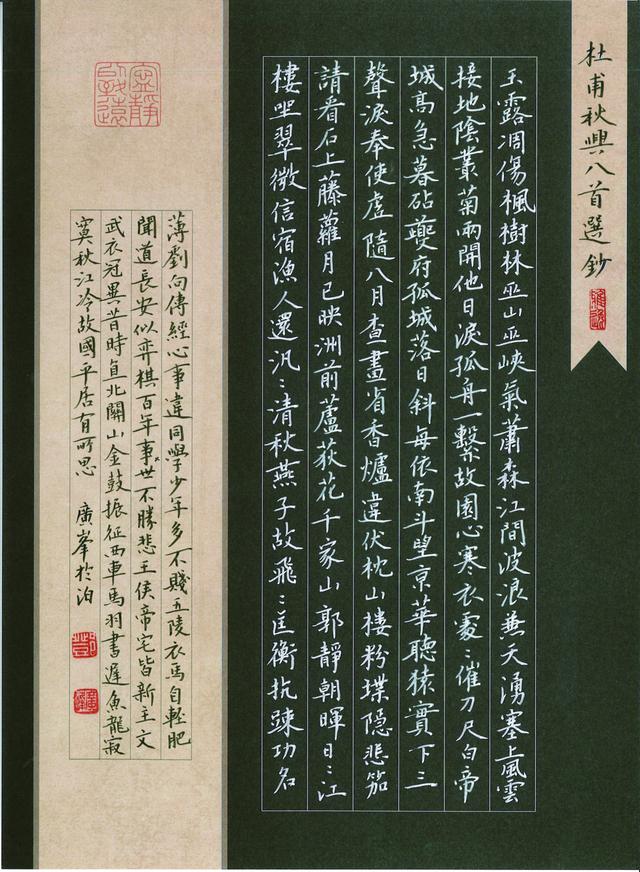 杜甫秋興八首選鈔
玉露凋傷楓樹林巫山巫峽氣蕭森江間波浪兼天湧塞上風雲
接地陰叢菊兩開他日淚孤舟一繫故園心寒衣處〻催刀尺白帝
城高急暮砧夔府孤城落日斜每依南斗望京華聽猿實下三
聲淚奉使虛隨八月查畫省香爐違伏枕山樓粉堞隱悲笳
請看石上藤蘿月已映洲前蘆荻花千家山郭靜朝暉日〻江
樓坐翠微信宿漁人還汎〻清秋燕子故飛〻匡衡抗疎功名
寧靜致遠
薄劉向傳經心事違同學少年多不賤五陵衣馬自輕肥
聞道長安似弈棋百年事世不勝悲王侯帝宅皆新主文
武衣冠異昔時直北關山金鼓振征西車馬羽書遲魚龍寂
寞秋江冷故國平居有所思 廣峯於泊